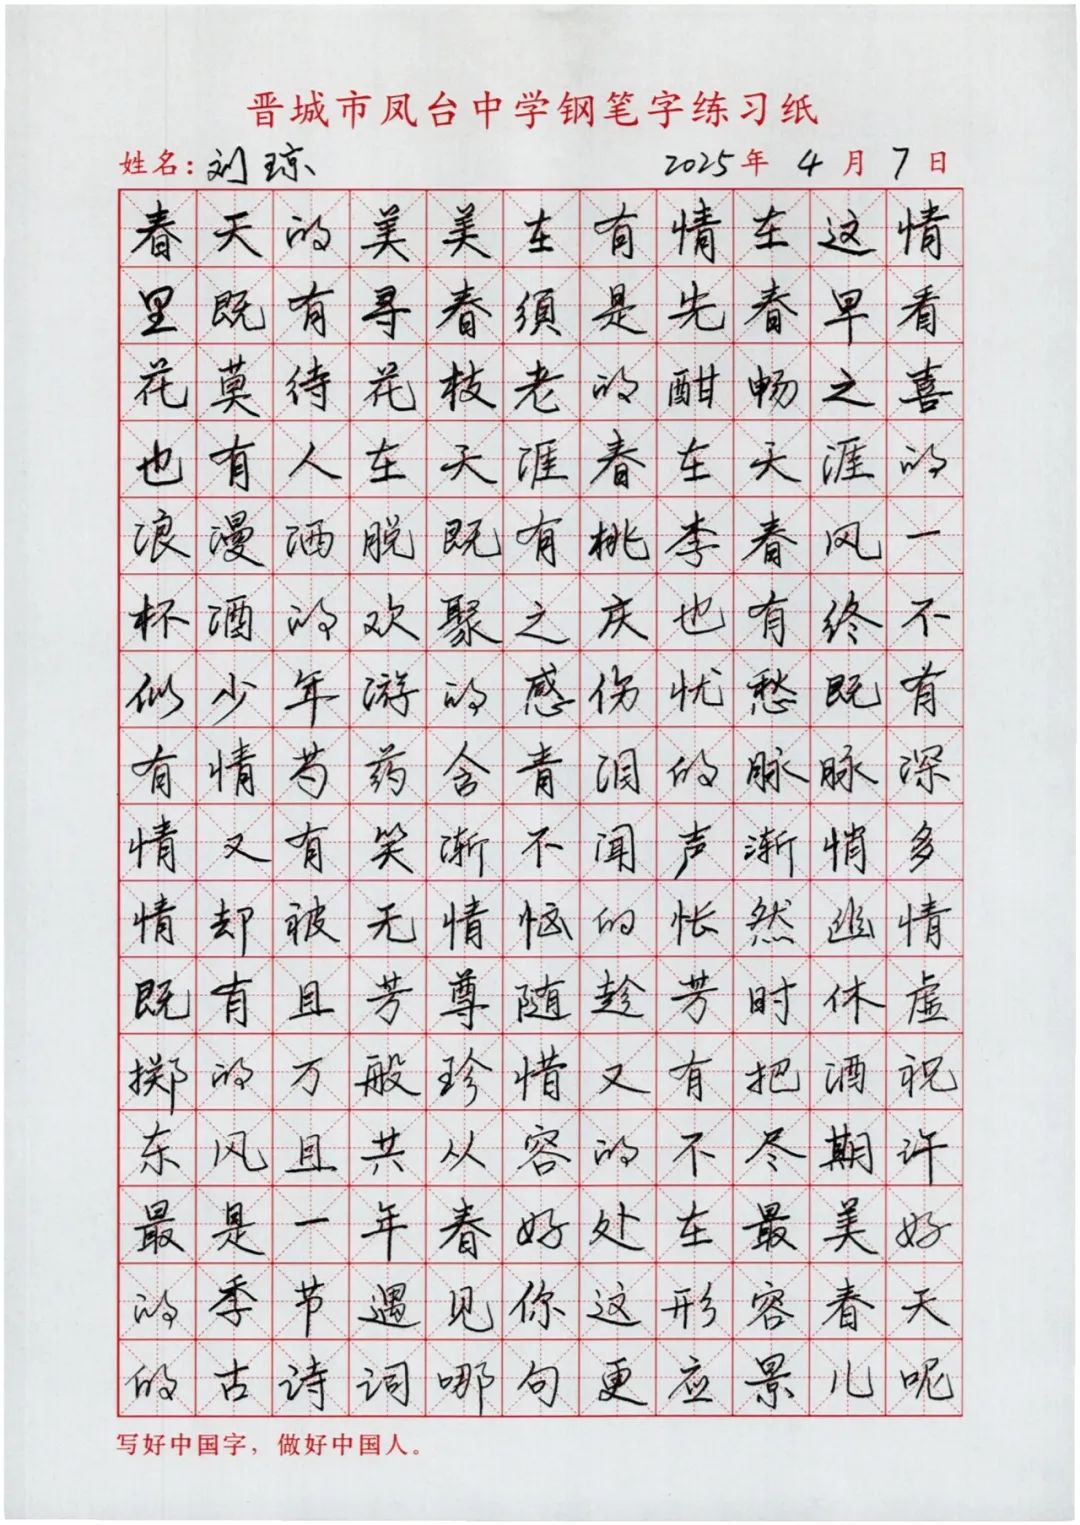 晋城市凤台中学钢笔字练习纸
姓名：刘琼 2025年4月7日
春天的美美在有情在这情
里既有寻春须是先春早看
花莫待花枝老的酣畅之喜
也有人在天涯春在天涯的
浪漫洒脱既有桃李春风一
杯酒的欢聚之庆也有终不
似少年游的感伤忧愁既有
有情芍药含青泪的脉脉深
情又有笑渐不闻声渐悄多
情却被无情恼的怅然追情
既有且芳尊随趁芳时休虚
掷的万般珍惜又有把酒祝
东风且共从容的不尽期许
最是一年春好处在最美好
的季节遇见你这形容春天
的古诗词哪句更应景儿呢
写好中国字，做好中国人。